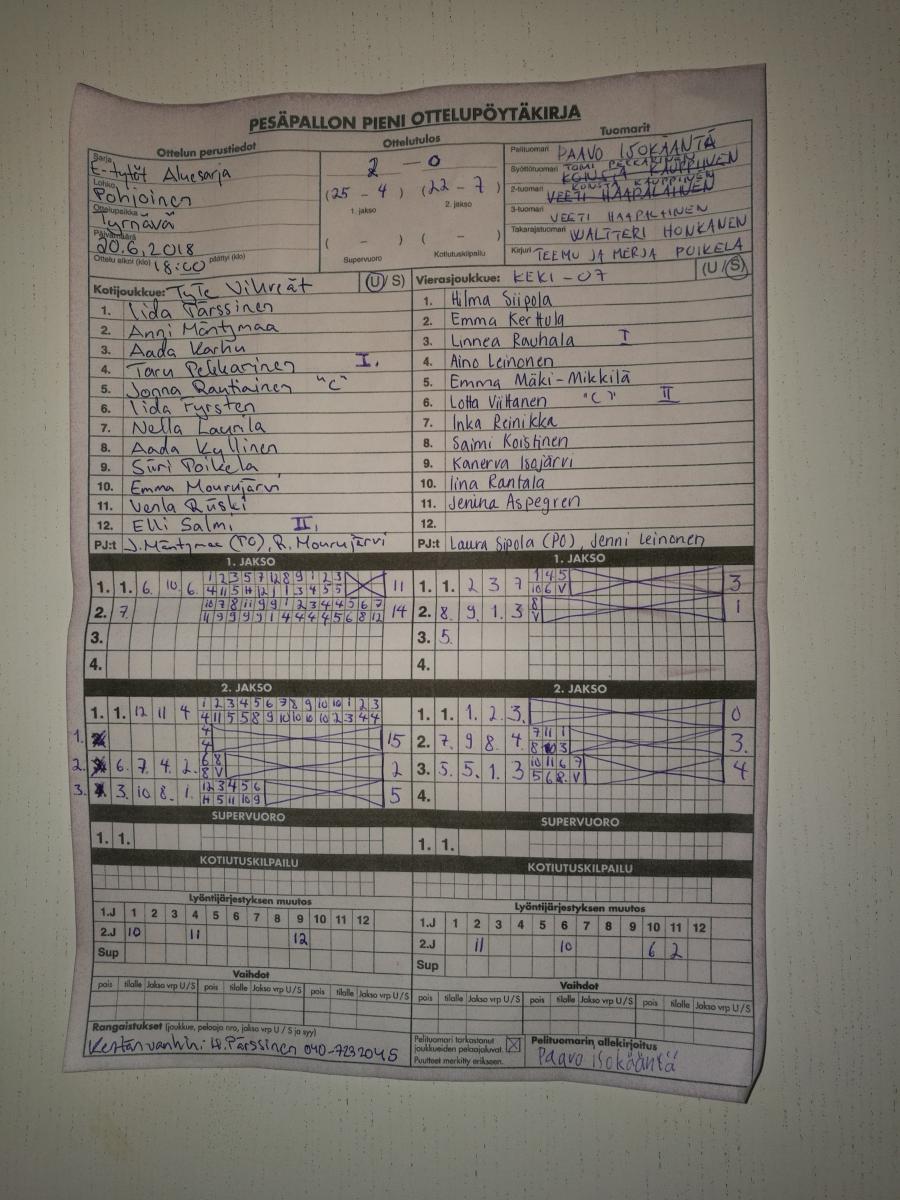 PESÄPALLON PIENI OTTELUPÖYTÄKIRJA
Ottelun perustiedot
Sarja
E-tytöt Aluesarja
Lohko
Pohjoinen
Ottelupaikka
Tyrnävä
Päivämäärä
20.6.2018
Ottelu alkoi (klo) 18:00 päättyi (klo)
Ottelutulos
2 - 0
(25 - 4) (22 - 7)
1. jakso 2. jakso
( - ) ( - )
Supervuoro Kotiutuskilpailu
Tuomarit
Pelituomari PAAVO ISOKÄÄNTÄ
Syöttötuomari TOMI PEKKARINEN
KONSTA KAUPPINEN
2-tuomari KONSTA KAUPPINEN
VEETI HAAPALAINEN
3-tuomari VEETI HAAPALAINEN
Takarajatuomari WALTTERI HONKANEN
Kirjuri TEEMU JA MERJA POIKELA
Kotijoukkue: TyTe Vihreät (U/S)
1. Iida Pärssinen
2. Anni Mäntymaa
3. Aada Karhu
4. Taru Pekkarinen I.
5. Jonna Rautiainen "C"
6. Iida Fyrsten
7. Nella Laurila
8. Aada Kyllinen
9. Siiri Poikela
10. Emma Mourujärvi
11. Venla Rüski
12. Elli Salmi II.
PJ:t J. Mäntymaa (PO), R. Mourujärvi
Vierasjoukkue: KEKI - 07 (U/S)
1. Hilma Siipola
2. Emma Kerttula
3. Linnea Rauhala I
4. Aino Leinonen
5. Emma Mäki-Mikkilä
6. Lotta Viitanen "C" II
7. Inka Reinikka
8. Saimi Koistinen
9. Kanerva Isojärvi
10. Iina Rantala
11. Jenina Aspegren
12.
PJ:t Laura Sipola (PO), Jenni Leinonen
1. JAKSO
1. 1. 6. 10 6. 1 2 3 5 7 12 8 9 1 2 3 11
2. 7. 14
3.
4.
1. JAKSO
1. 1. 2 3 7 1 4 5 3
10 6 V
2. 8. 9 1. 3 8 1
V
3. 5.
4.
2. JAKSO
1. 1. 12 11 4 1 2 3 4 5 6 7 8 9 10 10 1 2 3
4 11 5 5 8 9 10 10 10 10 2 3 4 4
1. 4 15
4
2. 6. 7. 4. 2. 6 8 2
8 V
3. 3. 10 8. 1. 12 3 4 5 6 5
11 5 11 10 9
2. JAKSO
1. 1. 1. 2. 3. 0
2. 7. 9 8. 4. 7 11 1 3.
8 10 3
3. 5. 5. 1. 3 10 11 6 7 4
5 6 8. V
4.
SUPERVUORO
1. 1.
SUPERVUORO
1. 1.
KOTIUTUSKILPAILU
KOTIUTUSKILPAILU
Lyöntijärjestyksen muutos
1.J 1 2 3 4 5 6 7 8 9 10 11 12
2.J 10 11 12
Sup
Lyöntijärjestyksen muutos
1.J 1 2 3 4 5 6 7 8 9 10 11 12
2.J 11 10 6 2
Sup
Vaihdot
pois tilalle Jakso vrp U/S pois tilalle Jakso vrp U/S pois tilalle Jakso vrp U/S
Vaihdot
pois tilalle Jakso vrp U/S pois tilalle Jakso vrp U/S pois tilalle Jakso vrp U/S
Rangaistukset (joukkue, pelaaja nro, jakso vrp U / S ja syy)
Kentän vanhin: H. Pärssinen 040-7232045
Pelituomari tarkastanut
joukkueiden pelaajaluvat.
Puutteet merkitty erikseen.
Pelituomarin allekirjoitus
Paavo Isokääntä